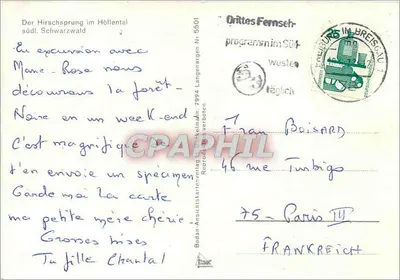 Der Hirschsprung im Höllental
südl. Schwarzwald
En excursion avec
Marie-Rose nous
découvrons la forêt
Noire en un week-end
C'est magnifique je
t'en envoie un spécimen
Garde moi la carte
ma petite mère chérie.
Grosses bises
Ta fille Chantal
7994 Langenargen Nr. 5501
Reproduktion verboten.
Drittes Fernseh-
programm im Süd-
westen
täglich
FREIBURG IM BREISGAU
CPAPHIL
Frau BOISARD
46 rue Turbigo
75 - Paris III
FRANKREICH